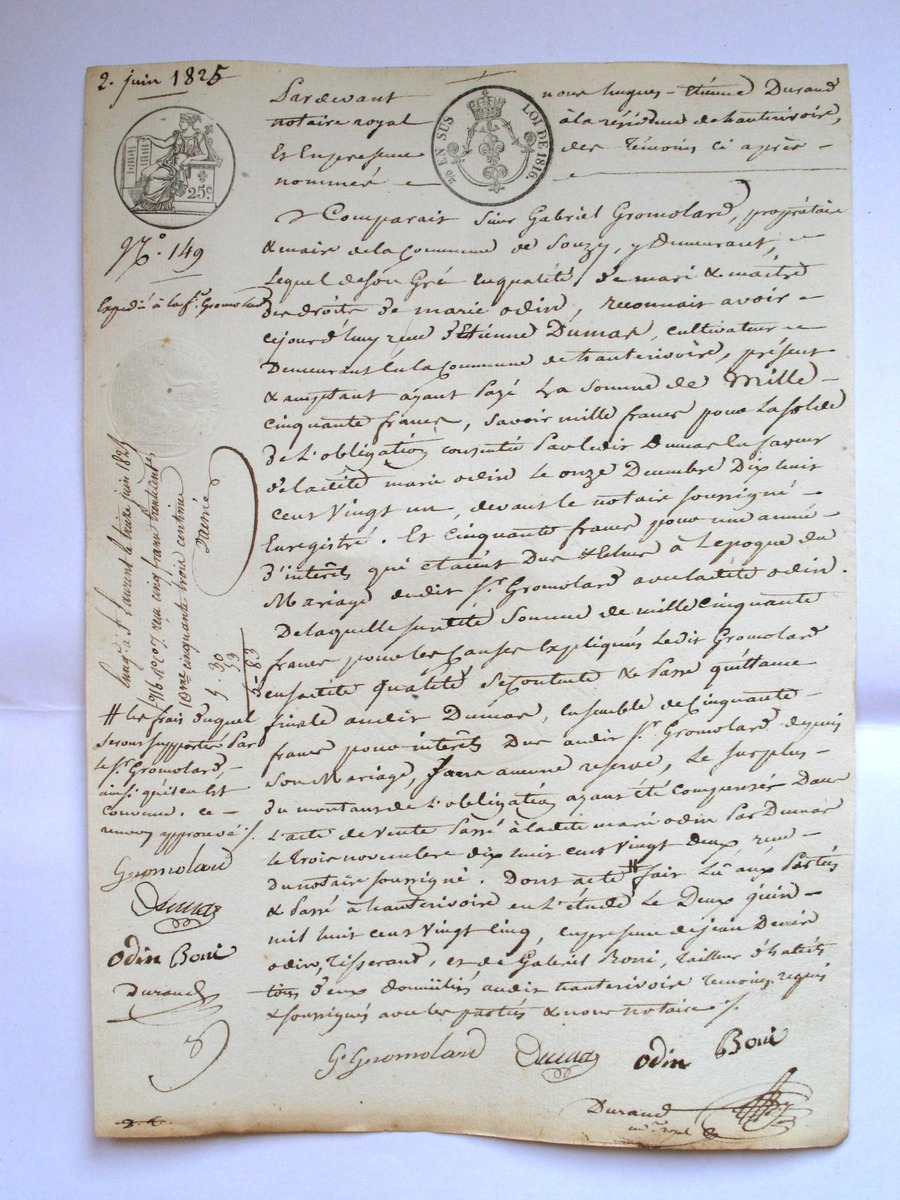 2. juin 1825
25c.
20 EN SUS
LOI DE 1816.
Pardevant nous hugues-Etienne Durand
notaire royal à la résidence de hauterivoire,
Et En presence des Témoins ci après
nommés
Comparait Sieur Gabriel Gromolard, propriétaire
& maire de la Commune de Souzy, y Demeurant,
Lequel de son Gré en qualité de mari & maître
Des droits de marie odin, reconnait avoir
cejourd'huy reçu d'Etienne Dumas, cultivateur
Demeurant En la Commune de hauterivoire, présent
& acceptant ayant Payé La Somme de Mille
cinquante francs, savoir mille francs pour La solde
de L'obligation consentie Par ledit Dumas En faveur
de ladite marie odin Le onze Decembre Dix huit
cent Vingt un, devant le notaire soussigné
Enregistré. Et Cinquante francs pour une année
d'intérêts qui étaient Dus & Echus à l'epoque du
Mariage dudit Sr. Gromolard avec ladite odin.
De laquelle susdite Somme de mille Cinquante
francs pour les Causes Expliqués Ledit Gromolard
en susdite qualité Se Contente & Passe quittance
finale audit Dumas, Ensemble de Cinquante
francs pour intérêts Dus audit Sr. Gromolard depuis
Son Mariage, Sans aucune reserve, Le Surplus
du montant de L'obligation ayant été Compensée Dans
L'acte de Vente Passé à ladite marie odin Par Dumas
le Trois novembre dix huit cent vingt deux, reçu
Du notaire soussigné. Dont acte # fait Lû aux Parties
& Passé à hauterivoire en L'étude Le Deux juin
mil huit cent vingt Cinq, En presence de jean Denis
odin, Tisserand, et de Gabriel Boni, Tailleur d'habits
tous deux domiciliés audit hauterivoire Temoins requis
& soussignés avec les parties & nous notaire ./.
Gl Gromolard Dumas odin Boni
Durand
nre. royal
No. 149
Expedié à la fe. Gromolard
Enregé. à St. Laurent le treize juin 1825
reçu cinq francs trente cents
10me cinquante trois centimes
5. 30
53
5. 83
# les frais duquel
seront supportés Par
le Sr. Gromolard,
ainsi qu'il en Est
Convenu. ce
renvoi approuvé ./.
Gromolard
Dumas
odin Boni
Durand